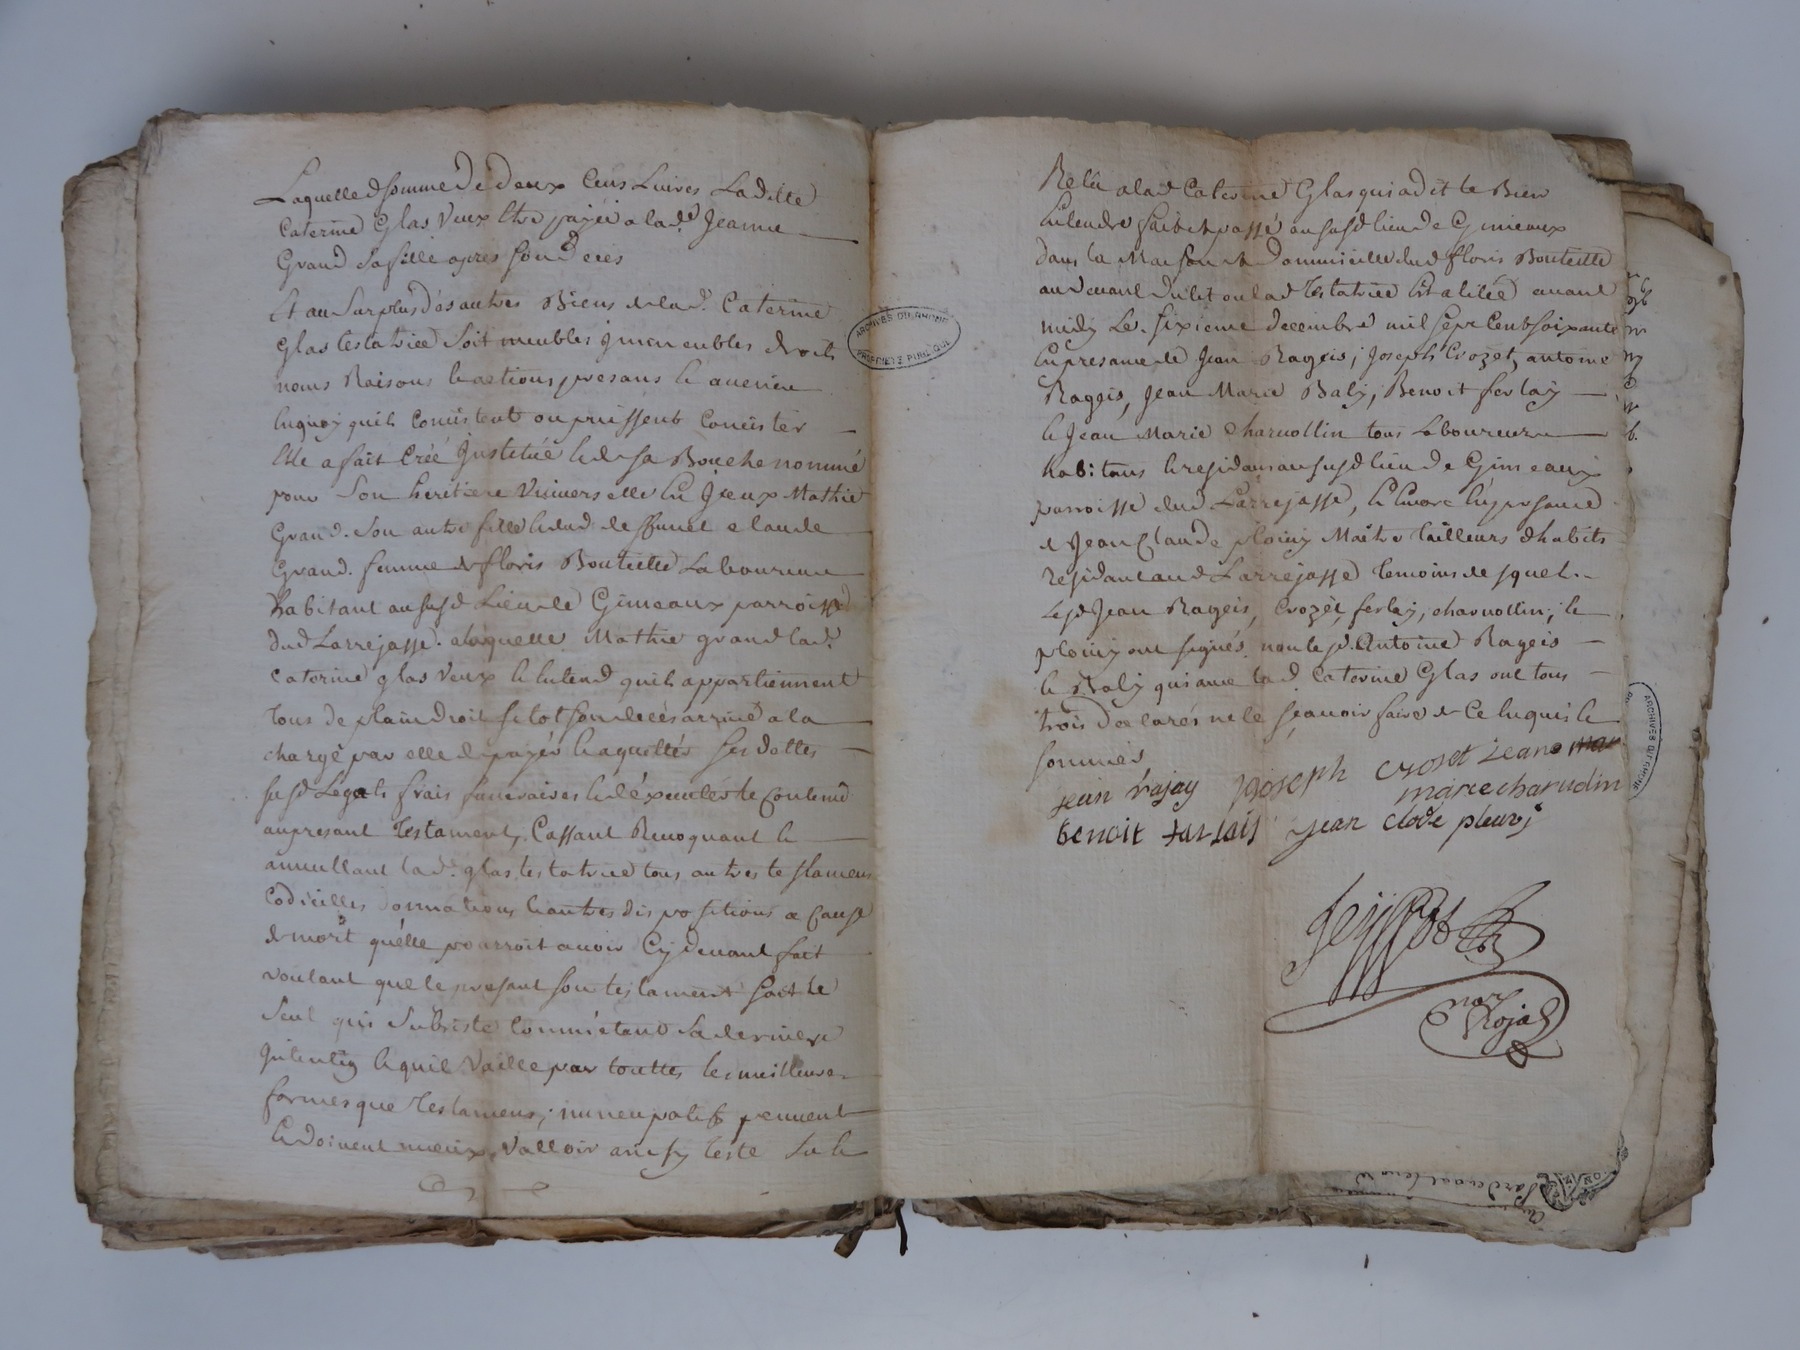 Laquelle d somme de deux Cens Livres Ladille
Caterine Glas Veux Etre payée a la de Jeanne
Grand Sa fille apres son deces
Et au Surplus des autres Biens de lad. Caterine
Glas testatrice Soit meubles jmmeubles droits
noms Raisons et actions presans et avenir
Enquoy quils Consistent ou puissent Consister
Elle a fait Créé Jnstitué et de sa Bouche nommé
pour Son heritiere Universelle
Mathie
Grand. Son autre fille et dud deffunct claude
Grand. femme de floris Bouteille Laboureur
habitant au susd Lieu de Gimeaux parroisse
dud Larrejasse. a laquelle Mathie grand lad.
Caterine glas Veux et Entend quils appartiennent
tous de plain droit sitot son decés arrivé a la
chargé par elle de payer et aquitter ses dettes
susd Legats frais funeraires et d'éxecuter le Contenu
au presant Testament, Cassant Revoquant et
annullant lad. glas testatrice tous autres testamens
Codicilles donnations et autres dispositions a Cause
de mort qu'elle pourroit avoir Cy devant fait
voulant que le presant son testament soit le
Seul qui Subsiste Comme étant Sa derniere
Jntention et quil Vaille par touttes les meilleures
formes que Testamens, nuncupatifs peuvent
et doivent mieux Valloir ainsy teste Lu et
ARCHIVES DU RHONE
PROPRIETE PUBLIQUE
Relû a lad Caterine Glas qui a dit le Bien
Entendre fait et passé au susd lieu de Gimeaux
dans la Maison et Dommicille dud floris Bouteille
au devant du lit ou lad testatrice Est alitée avant
midy Le sixieme decembre mil sept Cent soixante
En presance de Jean Rageis, Joseph Crozet, antoine
Rageis, Jean Marie Baly, Benoit ferlay
et Jean Marie Charvollin tous Laboureurs
habitans et residans au susd lieu de Gimeaux
parroisse dud Larrejasse, et Encore En presance
de Jean Claude plouvy Maitre tailleurs dhabits
residant aud Larrejasse temoins desquels
Lesd Jean Rageis, Crozet, ferlay, charvollin, et
plouvy ont signés non led. Antoine Rageis
et Baly qui avec lad Caterine Glas ont tous
trois declarés ne le sçavoir faire de Ce Enquis et
sommés
jean rajay joseph croset jean mar
marie charvolin
benoit farlais jean clode pleuvy
nore Royal
ARCHIVES DU RHONE